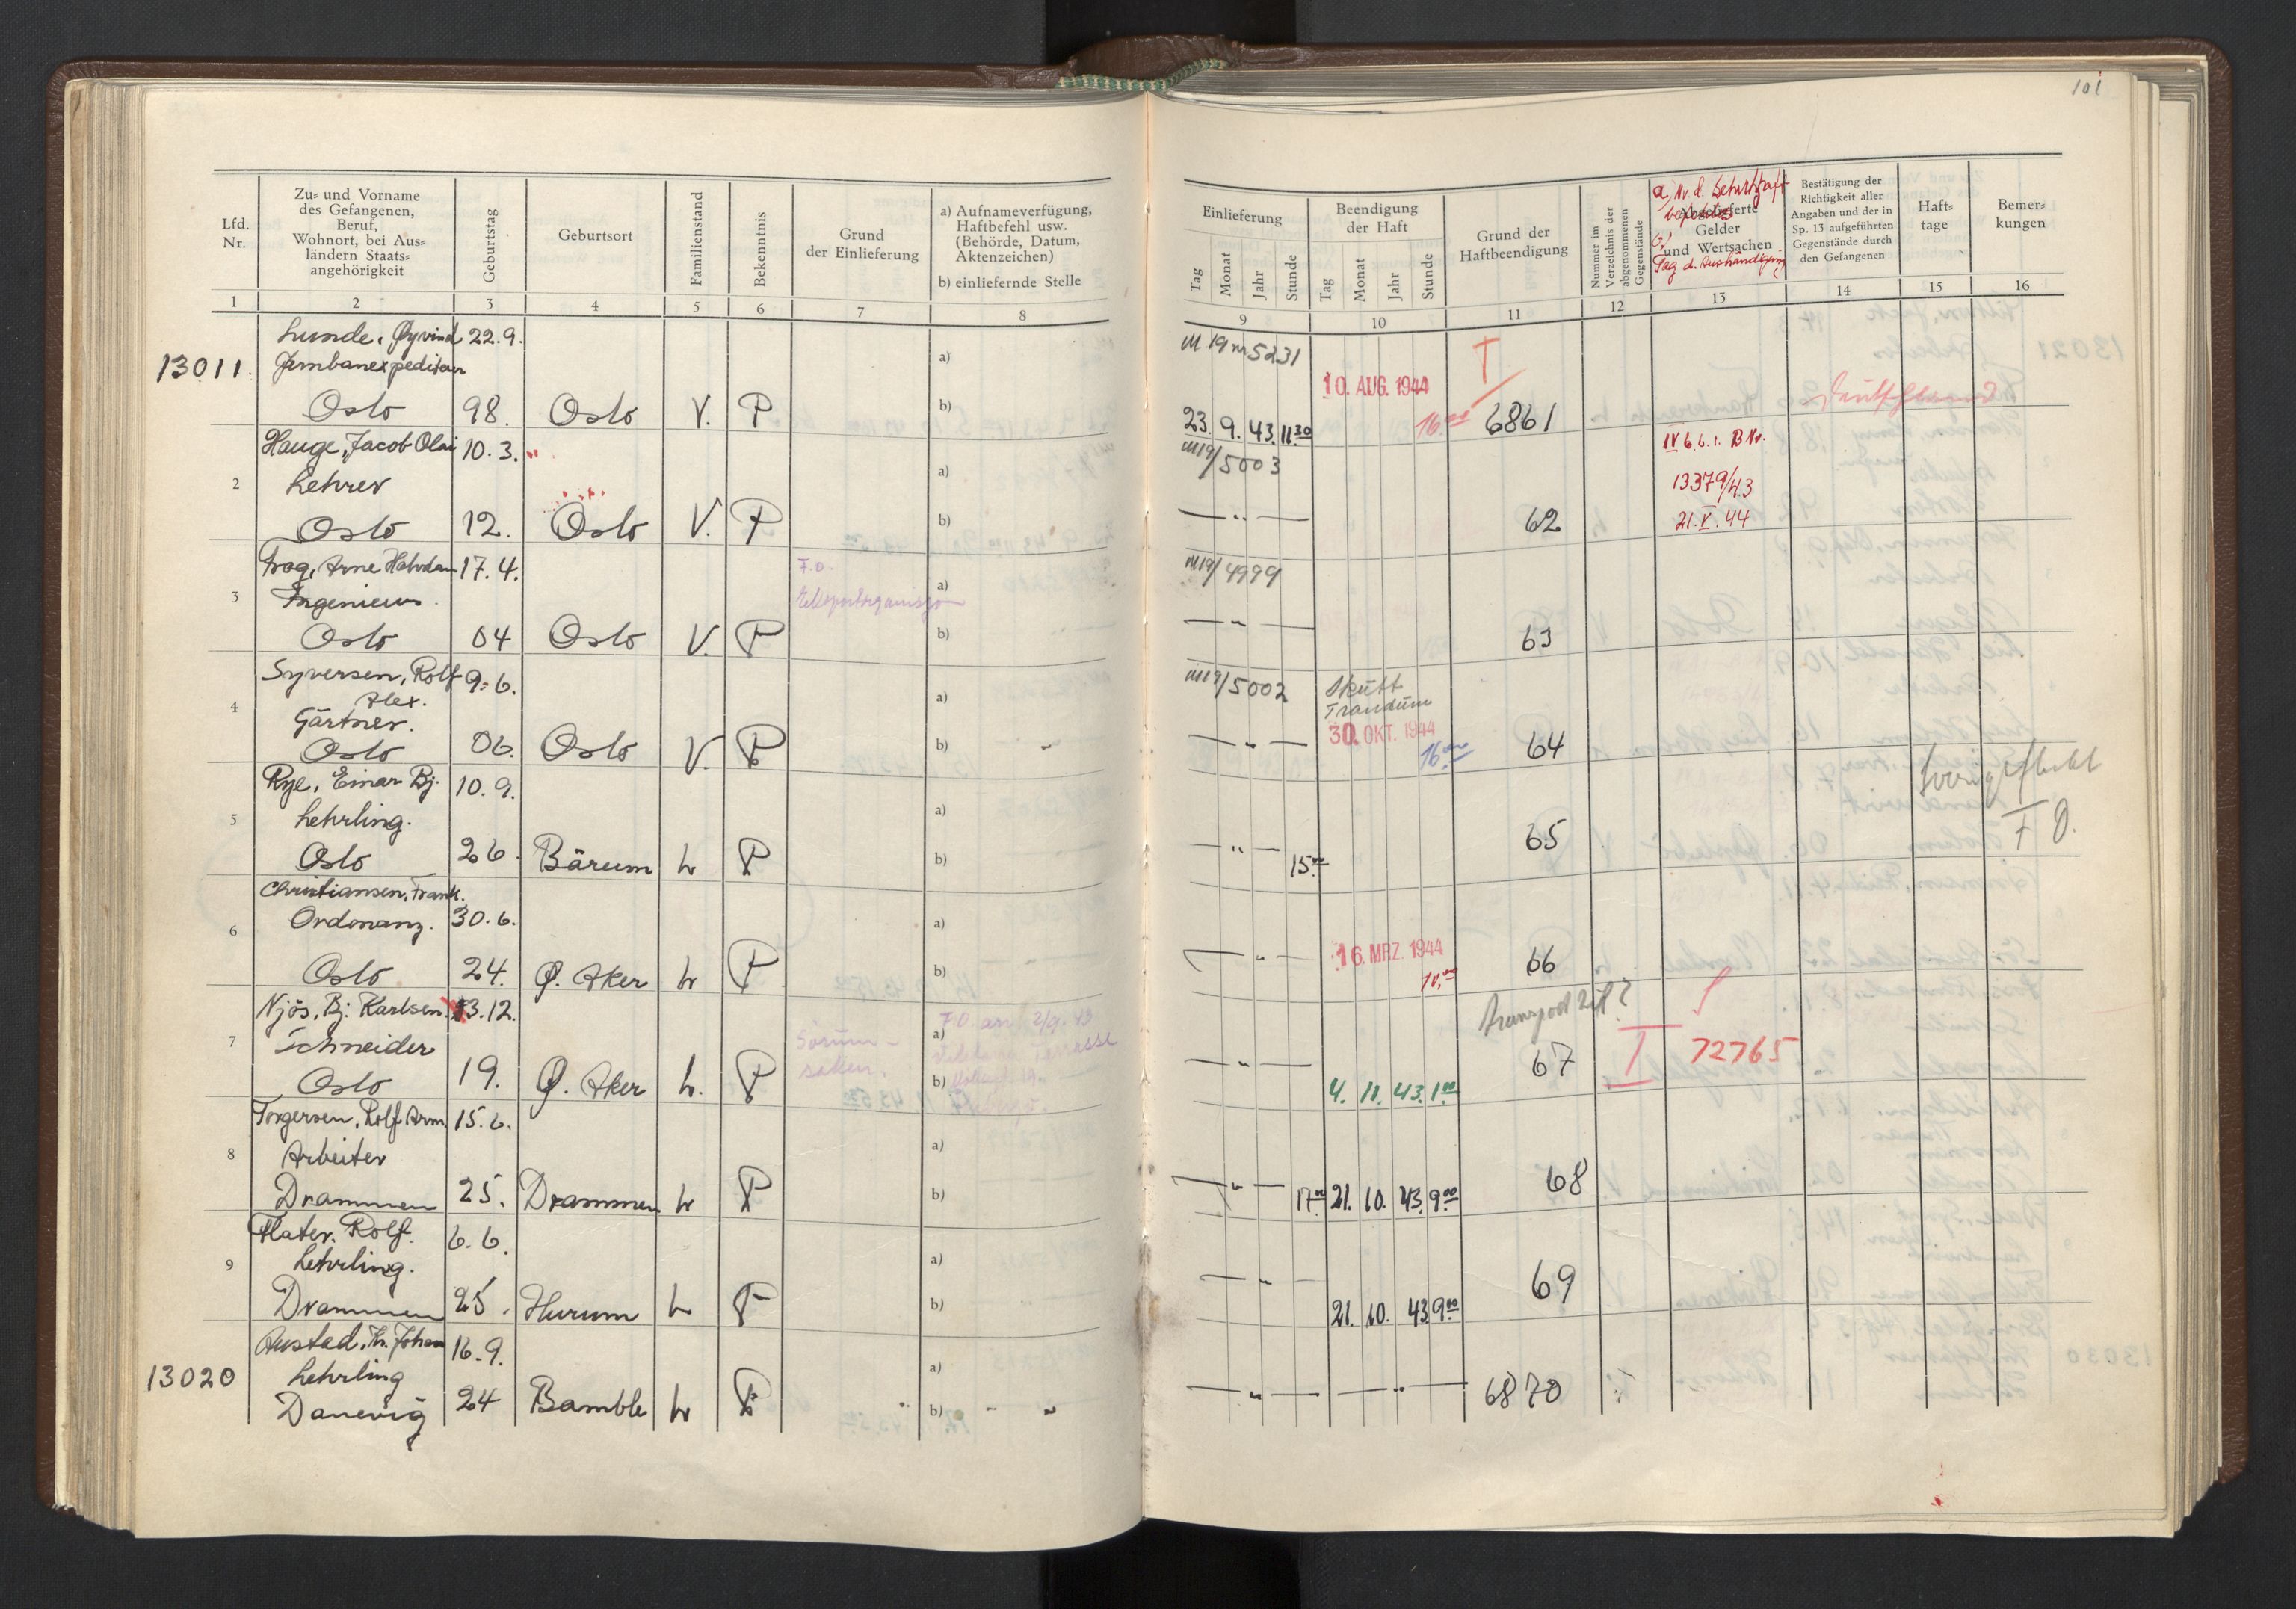 101
Lfd.
Nr.
Zu- und Vorname
des Gefangenen,
Beruf,
Wohnort, bei Aus-
ländern Staats-
angehörigkeit
Geburtstag
Geburtsort
Familienstand
Bekenntnis
Grund
der Einlieferung
a) Aufnameverfügung,
Haftbefehl usw.
(Behörde, Datum,
Aktenzeichen)
b) einliefernde Stelle
1 2 3 4 5 6 7 8
13011. Lunde, Øyvind 22.9.
Jernbanexpeditør a)
Oslo 98. Oslo V. P b)
Hauge, Jacob Olai 10.3.
2 Lehrer a)
Oslo 12. Oslo V. P b)
Frog, Arne Halvdan 17.4. F.O.
3 Ingenieur. a)
Oslo 04 Oslo V. P b)
Syversen, Rolf 9.6.
4 Alex. a)
Gärtner.
Oslo 06. Oslo V. P b)
Rye, Einar Bj. 10.9.
5 Lehrling. a)
Oslo 26. Bärum L P b)
Christiansen, Frank.
6 Ordonanz. 30.6. a)
Oslo 24. Ø. Aker L P b)
Njös, Bj. Karlsen. 13.12. F.O. an 2/9.43
7 Schneider a)
Oslo 19. Ø. Aker L. P b)
Torgersen, Rolf Arm. 15.6.
8 Arbeiter a)
Drammen 25. Drammen L P b)
Flater. Rolf. 6.6.
9 Lehrling. a)
Drammen 25. Hurum L P b)
Austad, Th. Johan 16.9.
13020 Lehrling a)
Danevig 24 Bamble L P b)
Einlieferung
Tag Monat Jahr Stunde
Beendigung
der Haft
Tag Monat Jahr Stunde
Grund der
Haftbeendigung
Nummer im
Verzeichnis der
abgenommenen
Gegenstände
a, Nr. d.
Gelder
und Wertsachen
Tag d. Aushändigung
Bestätigung der
Richtigkeit aller
Angaben und der in
Sp. 13 aufgeführten
Gegenstände durch
den Gefangenen
Haft-
tage
Bemer-
kungen
9 10 11 12 13 14 15 16
M 19 nr 5231 T
10. AUG. 1944 Deutschland
23. 9. 43. 11.30 16.00 6861
M19/5003 IV 6.6.1. B Nr.
13379/43
— " — 62 21.V.44
M19/4999
— " — 63
M19/5002 Skutt
Trandum
30. OKT. 1944
— " — 16.00 64
— " — 15.00 65 F O.
— " — 16. MRZ. 1944 66
10.00
Transport Zeit?
— " — 4. 11. 43. 1.00 67 T 72765
— " — 17.00 21. 10. 43. 9.00 68
— " — 21. 10. 43 9.00 69
— " — — " — 6870